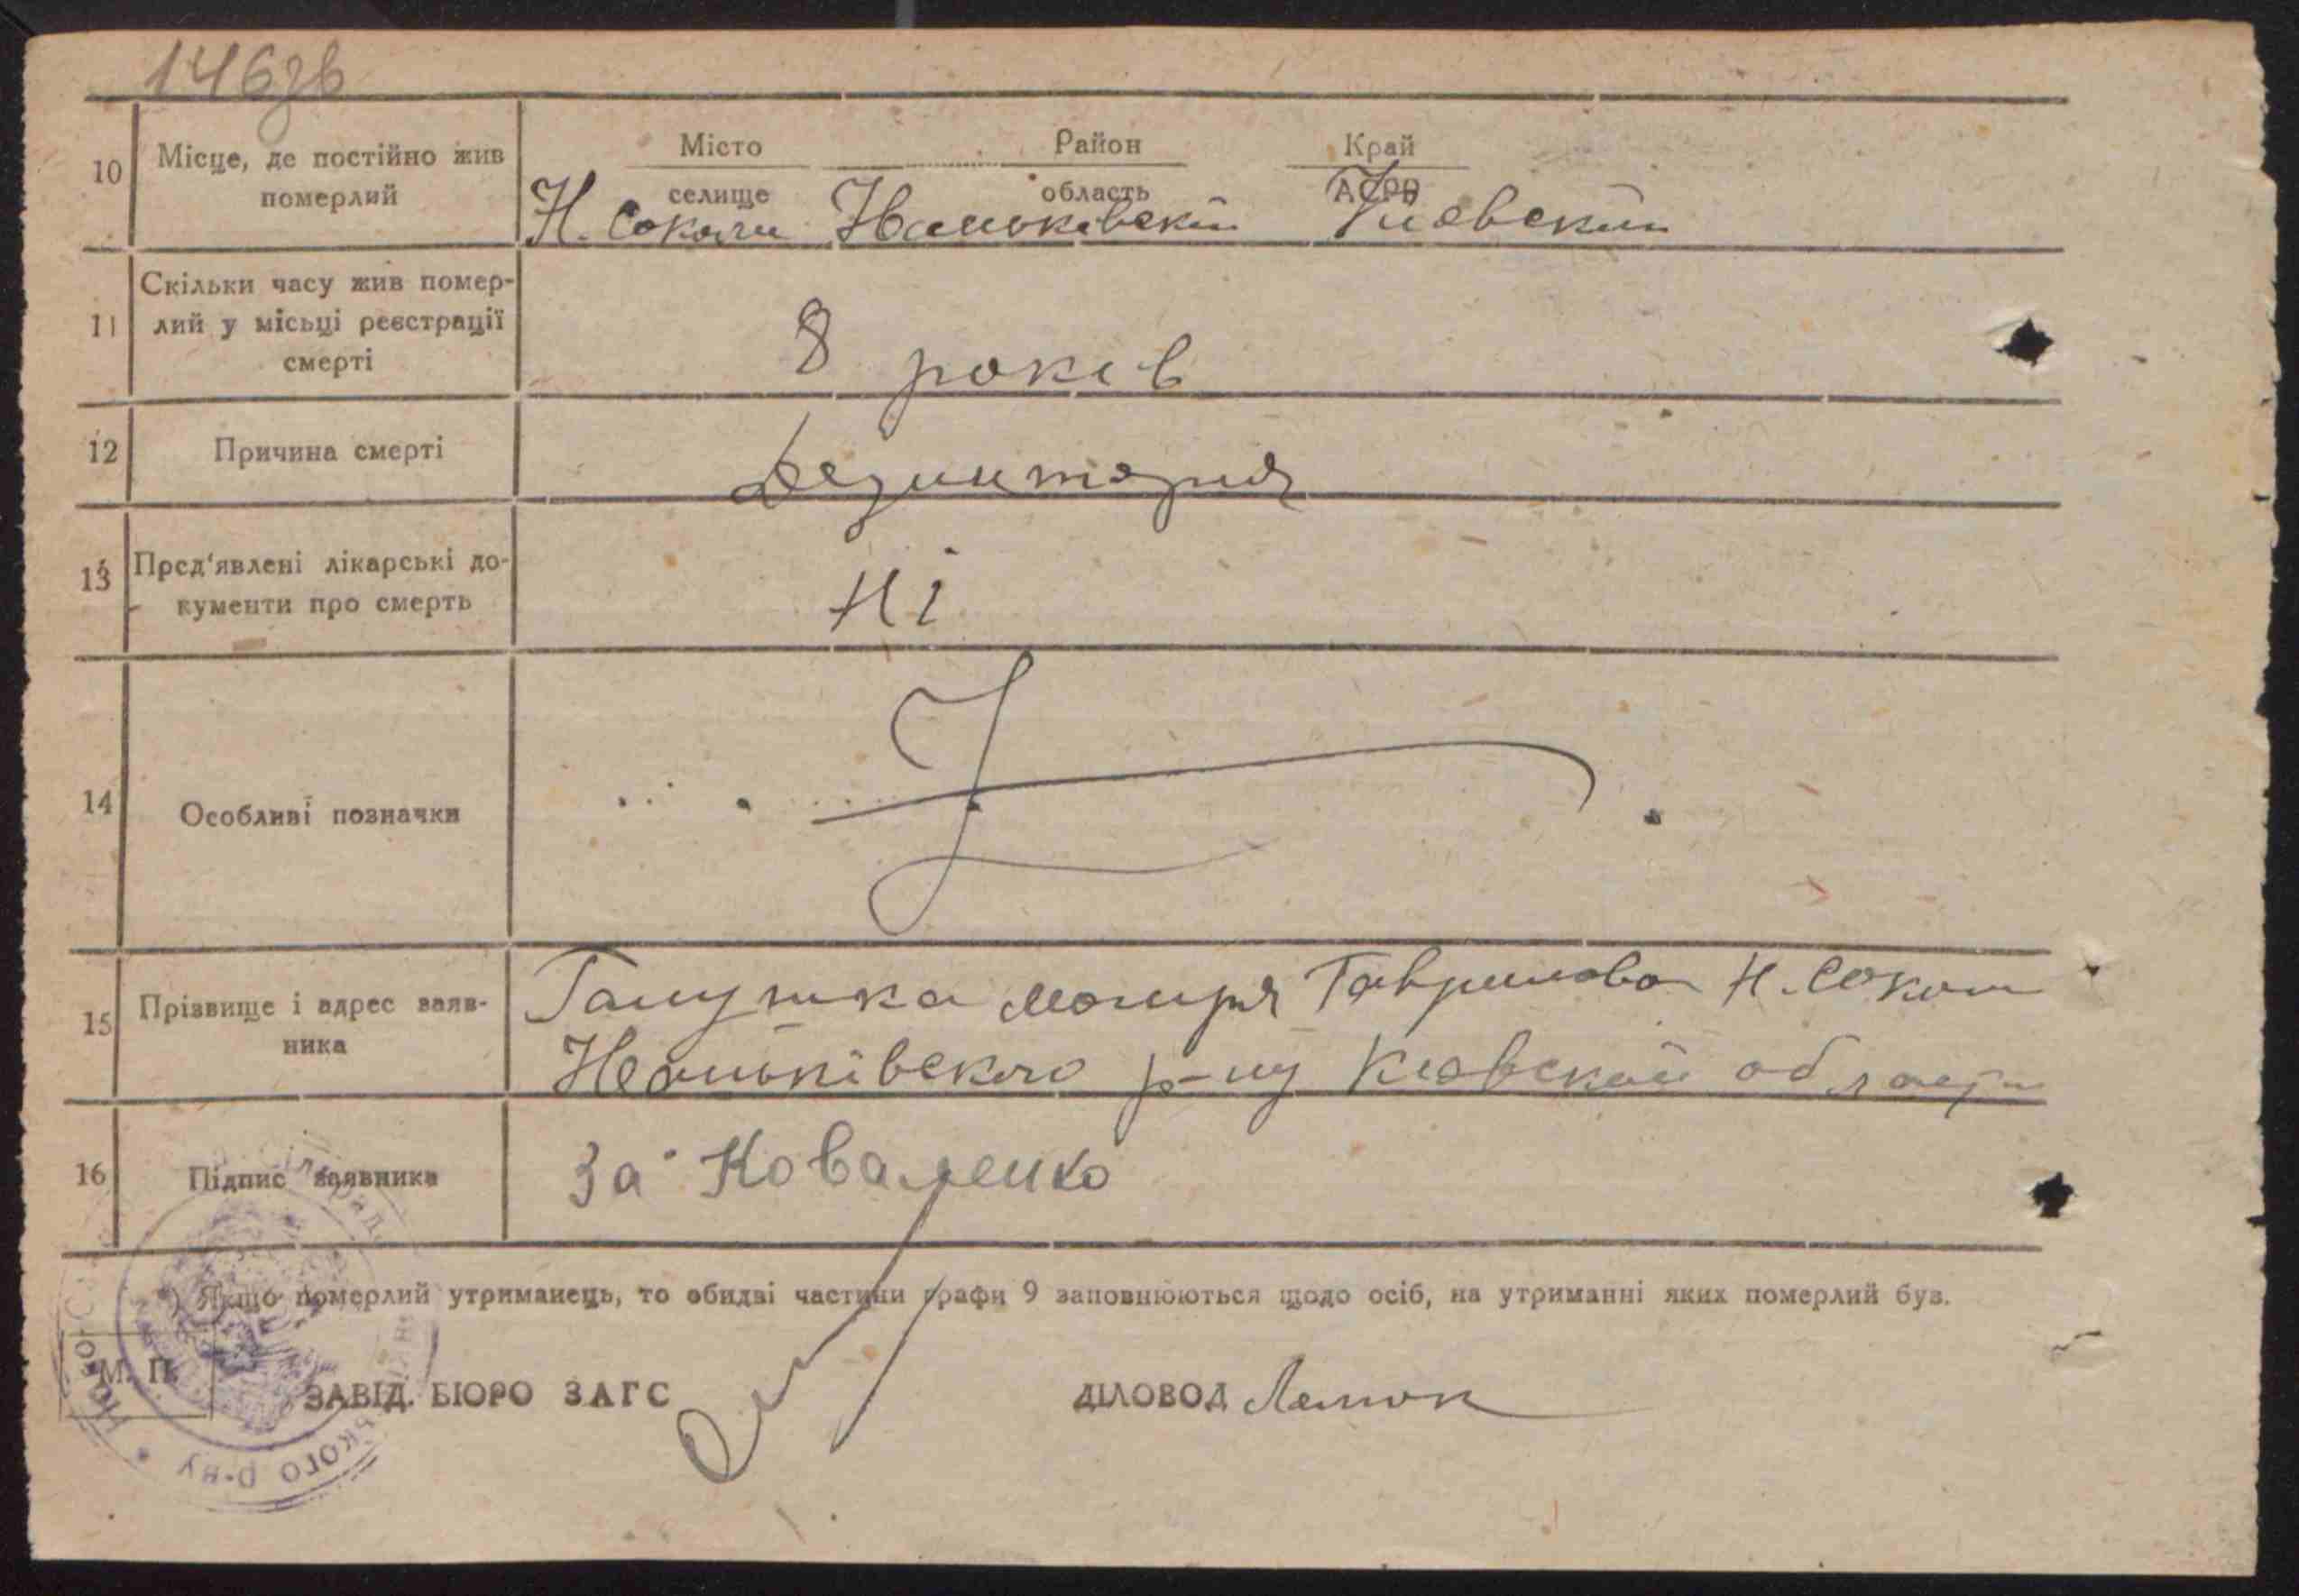 146зв
10 Місце, де постійно жив померлий
Місто Район Край
селище область АСРР
Н. Соколи Иваньківский Киевский
11 Скільки часу жив помер-
лий у місьці реєстрації
смерті
8 років
12 Причина смерті
Дезинтэрия
13 Пред'явлені лікарські до-
кументи про смерть
Ні
14 Особливі позначки
15 Прізвище і адрес заяв-
ника
Галушка Гаврилова Н. Соколи
Иваньківского р-ну Киевской области
16 Підпис заявника
За Коваленко
*) Якщо померлий утриманець, то обидві частини графи 9 заповнюються щодо осіб, на утриманні яких померлий був.
М. П.
ЗАВІД. БЮРО ЗАГС
ДІЛОВОД
ького р-ну